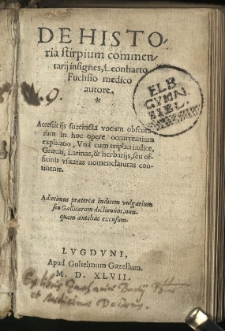 DE HISTO-
ria stirpium commen-
tarij insignes, Leonharto
Fuchsio medico
autore.
*
Accessit ijs succincta vocum obscura-
rum in hoc opere occurrentium
explicatio, Vnà cum triplici indice,
Graecas, Latinas, & herbarijs, seu of-
ficinis vsitatas nomenclaturas con-
tinente.
Adiecimus praeterea indicem vulgarium
seu Gallicarum dictionum, nun-
quam antehac excusum.
LVGDVNI,
Apud Gulielmum Gazellum.
M. D. XLVII.
Ex libris